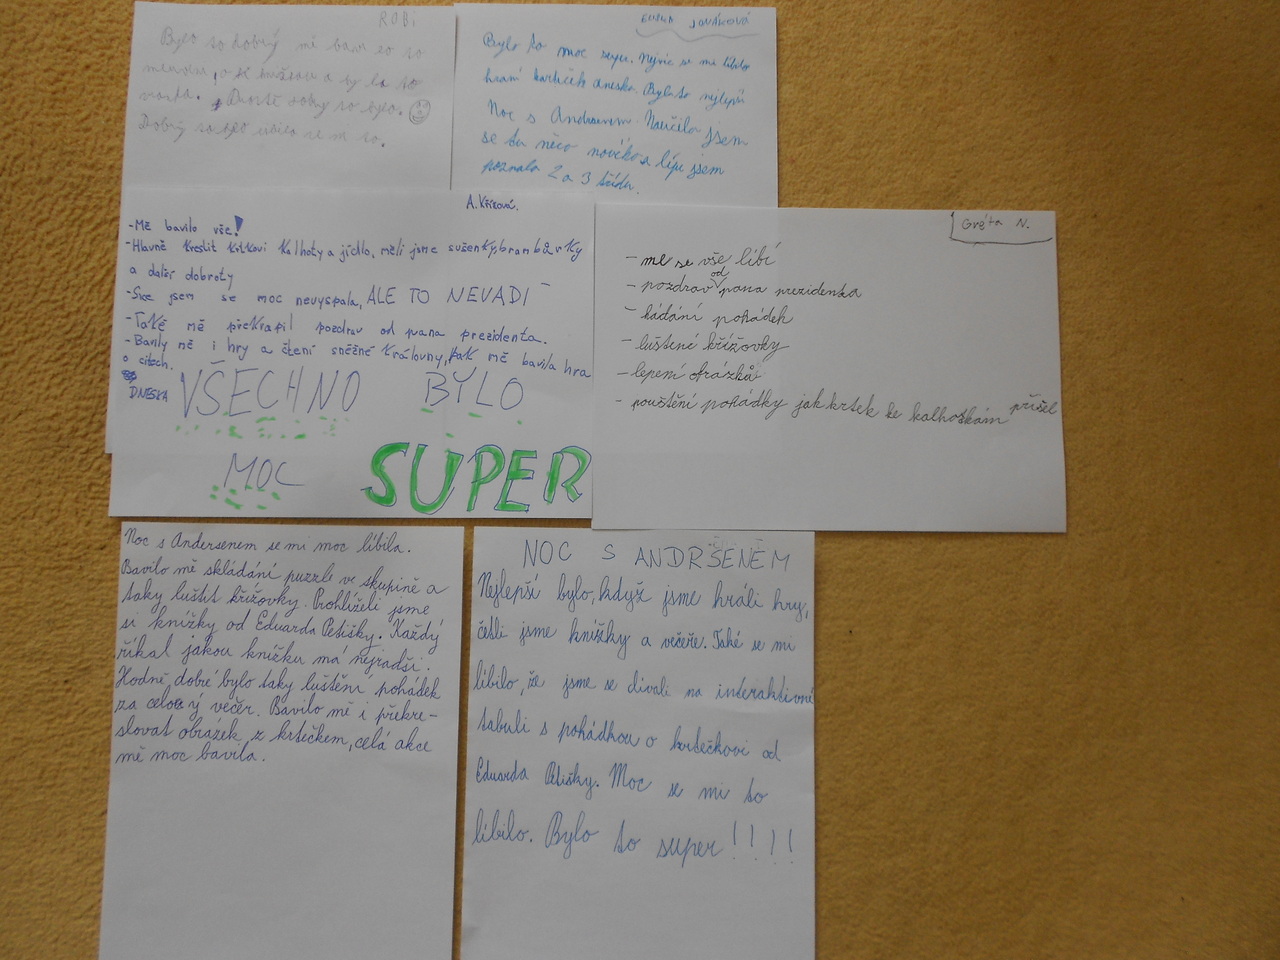 ROBI
Bylo to dobrý mě bavilo to
a by la to
Dobrý
EMMA NOVÁKOVÁ
Bylo to moc super. Nejvíc se mi líbilo
hraní kartiček dneska. Bylo to nejlepší
Noc s Andersenem. Naučila jsem
se tu něco nového a lépe jsem
poznala 2 a 3 třídu.
A. Křížová.
-Mě bavilo vše!
-Hlavně kreslit krtkovi kalhoty a jídlo, měli jsme sušenky, brambůrky
a další dobroty
-Sice jsem se moc nevyspala, ALE TO NEVADÍ
-Také mě překvapil pozdrav od pana prezidenta.
-Bavily mě i hry a čtení sněžné královny, pak mě bavila hra
o citech.
DNESKA VŠECHNO BYLO
MOC SUPER
Gréta N.
-me se vše líbí
-pozdrav od pana prezidenka
-hádání pohádek
-luštené křížovky
-lepení obrázků
-pouštění pohádky jak krtek ke kalhotkám přišel
Noc s Andersenem se mi moc líbila.
Bavilo mě skládání puzzle ve skupině a
taky luštit křížovky. Prohlíželi jsme
si knížky od Eduarda Petišky. Každý
říkal jakou knížku má nejradši.
Hodně dobré bylo taky luštění pohádek
za celový večer. Bavilo mě i překre-
slovat obrázek z krtečkem, celá akce
mě moc bavila.
NOC S ANDRŠENEM
Nejlepší bylo, když jsme hráli hry,
četli jsme knížky a večeře. Také se mi
líbilo, že jsme se dívali na interaktivní
tabuli s pohádkou o krtečkovi od
Eduarda Petišky. Moc se mi to
líbilo. Bylo to super!!!!